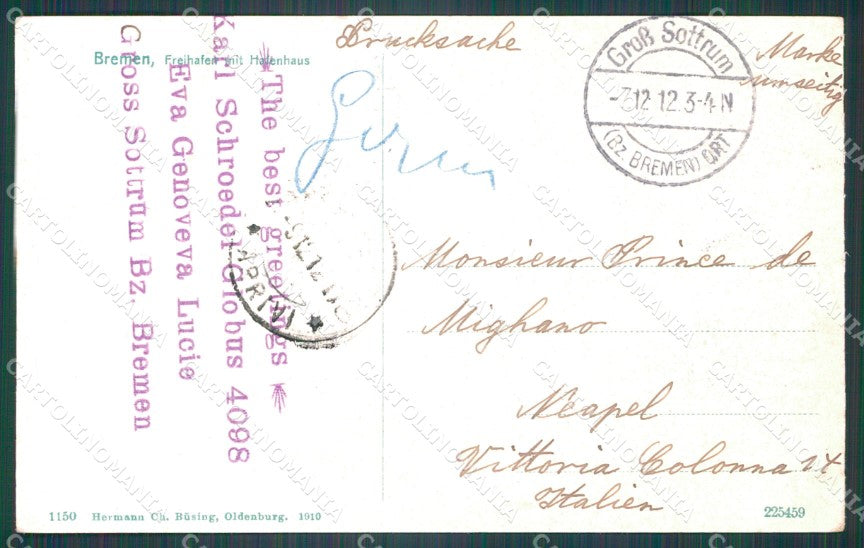 Bremen, Freihafen mit Hafenhaus
Drucksache
Marke
umseitig
Groß Sottrum
12 12 3-4N
(Bz BREMEN) ORT
The best greetings
Karl Schroeder Globus 4098
Eva Genoveva Lucie
Gross Sottrum Bz. Bremen
ARRIVI
Monsieur Prince de
Mighano
Neapel
Vittoria Colonna 14
Italien
1150 Hermann Ch. Büsing, Oldenburg. 1910
225459
CARTOLINOMANIA